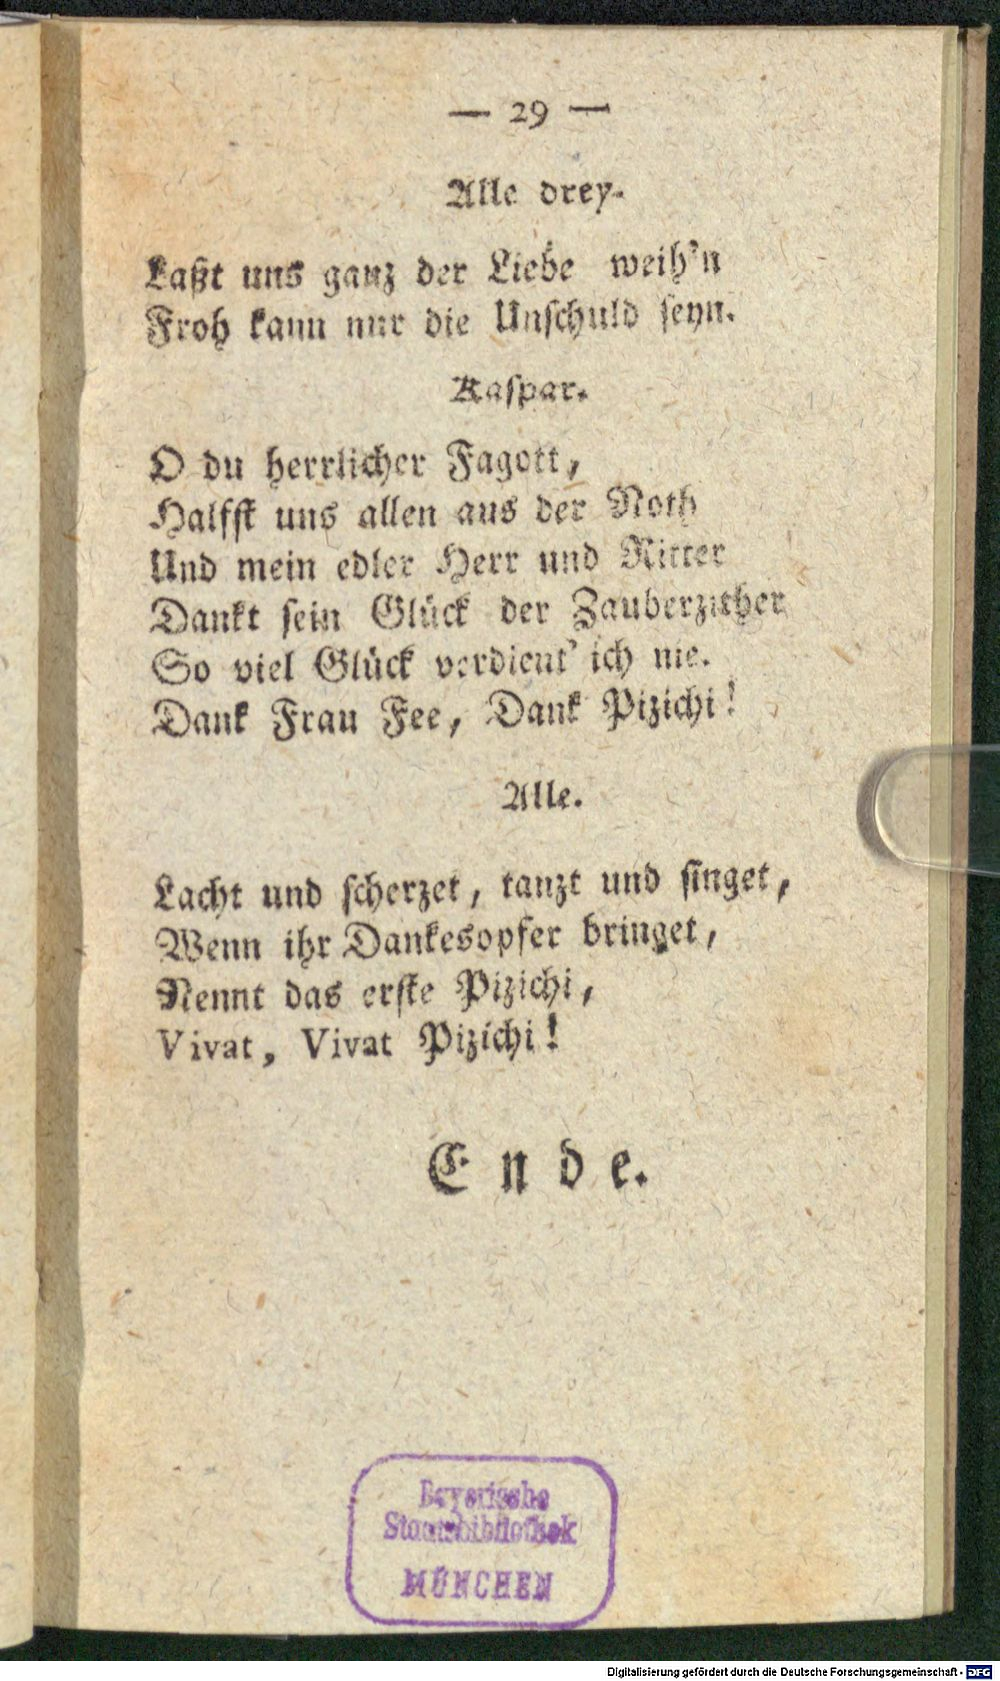 — 29 —
Alle drey.
Laßt uns ganz der Liebe weih'n
Froh kann nur die Unſchuld ſeyn.
Kaſpar.
O du herrlicher Fagott,
Halfſt uns allen aus der Noth
Und mein edler Herr und Ritter
Dankt ſein Glück der Zauberzither
So viel Glück verdient' ich nie.
Dank Frau Fee, Dank Pizichi!
Alle.
Lacht und ſcherzet, tanzt und ſinget,
Wenn ihr Dankesopfer bringet,
Nennt das erſte Pizichi,
Vivat, Vivat Pizichi!
Ende.
Bayerische
Staatsbibliothek
MÜNCHEN
Digitalisierung gefördert durch die Deutsche Forschungsgemeinschaft - DFG